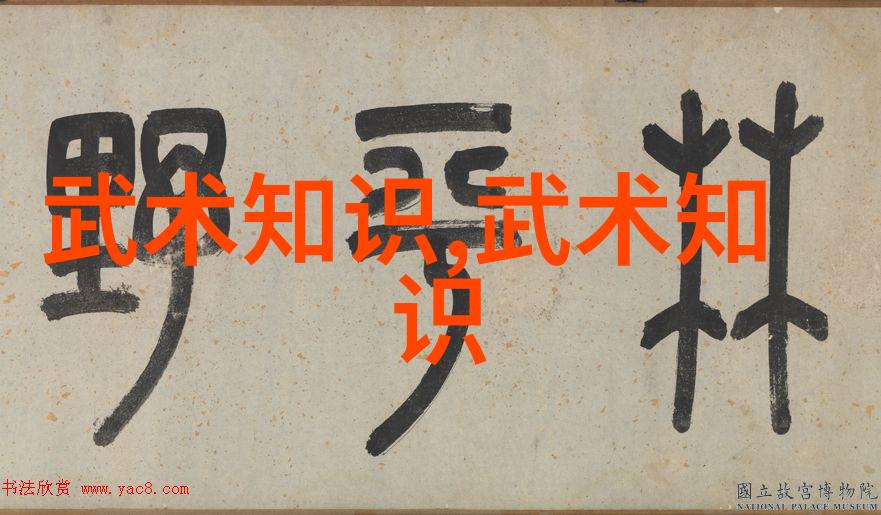 林平野
武术知识,武术知
识
书法欣赏 www.yac8.com
國立故宮博物院
NATIONAL PALACE MUSEUM